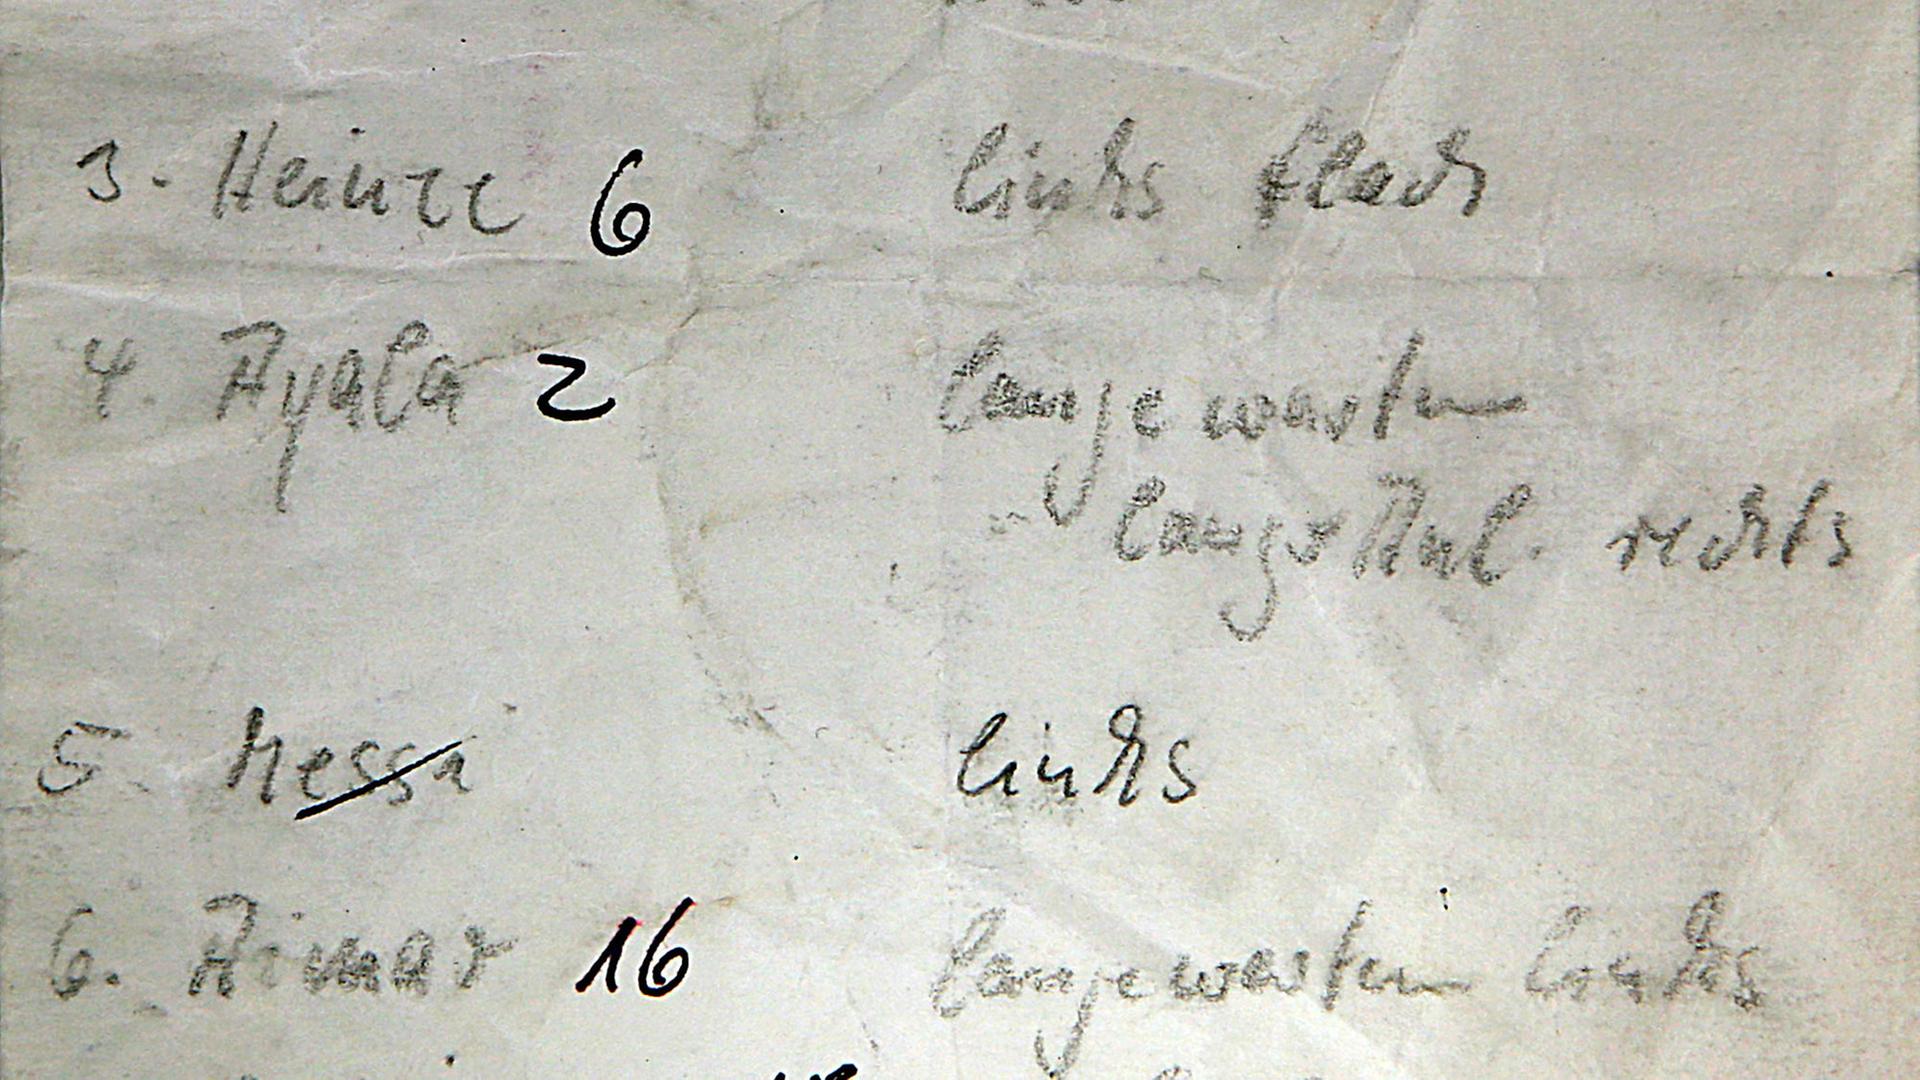 3. Heinze 6 links flach
4. Ayala 2 lange warten
langer Anl. rechts
5. Messi links
6. Aimar 16 lange warten links